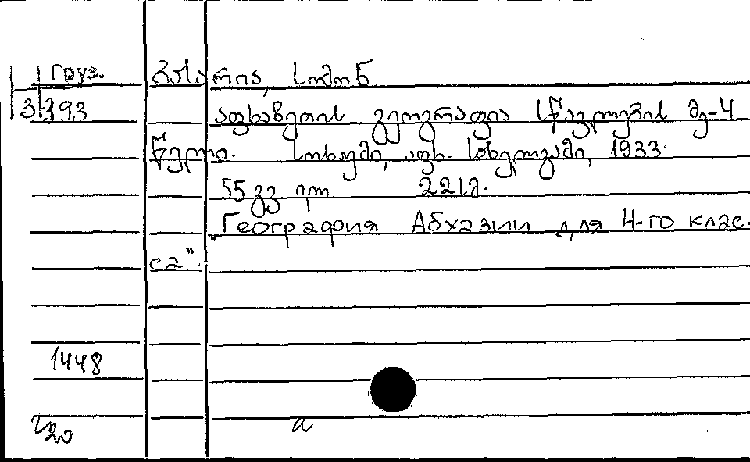 груз. ბასარია, სიმონ
აფხაზეთის გეოგრაფია სწავლების მე-4
წელი. სოხუმი, აფხ. სახელგამი, 1933.
55 გვ 221გ.
„География Абхазии для 4-го клас-
са".
1448